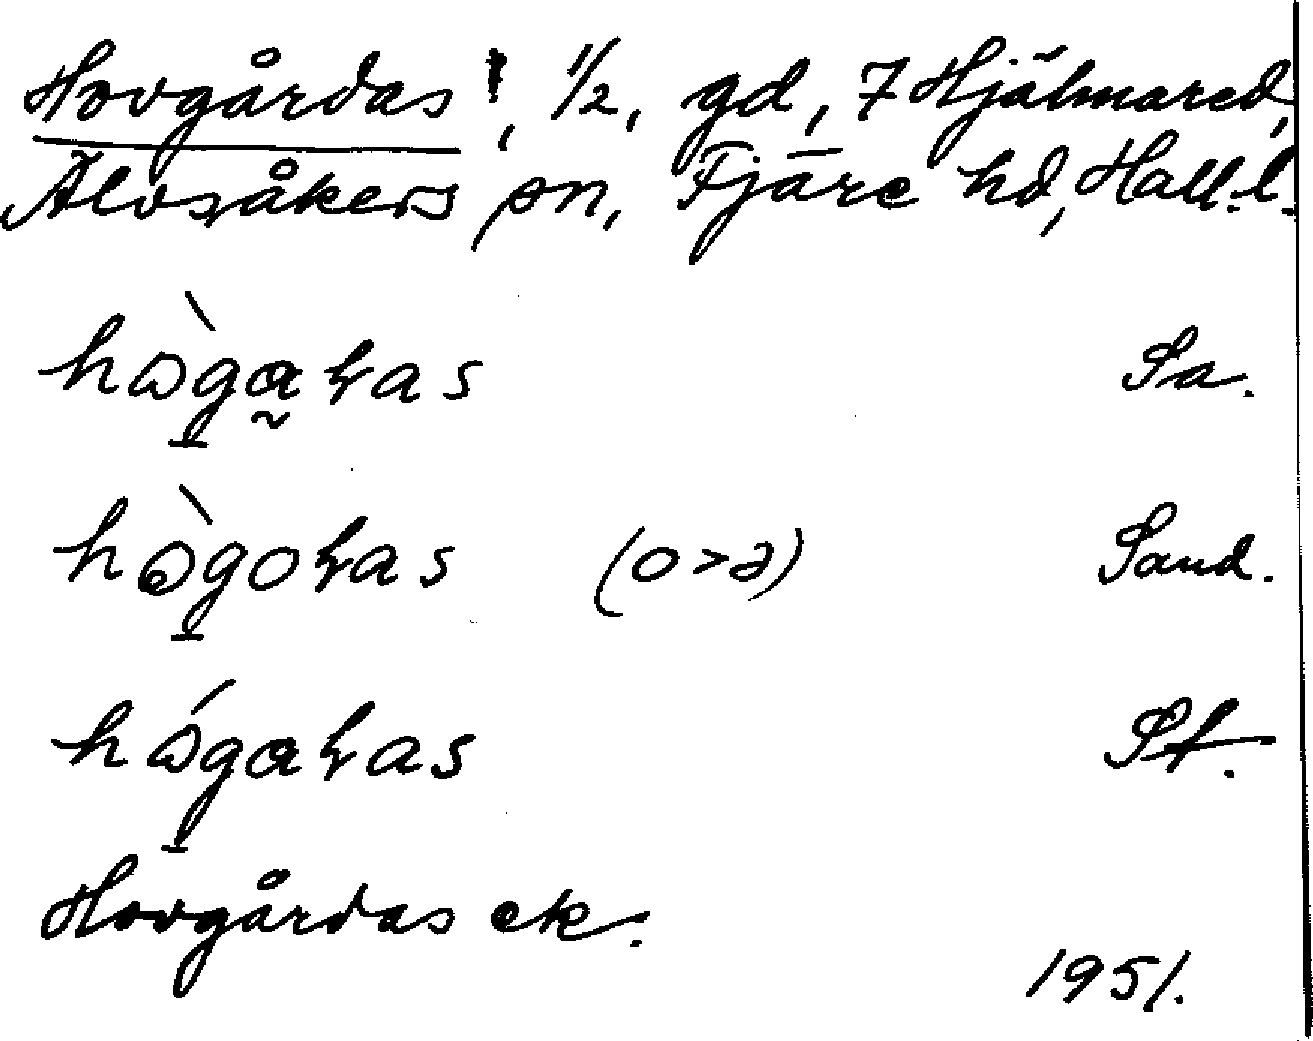 Hovgårdas!, 1/2, gd, 7 Hjälmared,
Älvsåkers sn, Fjäre hd, Hall. l.
Sa.
(o>ə) Sand.
Sf.
Hovgårdas ek.
1951.